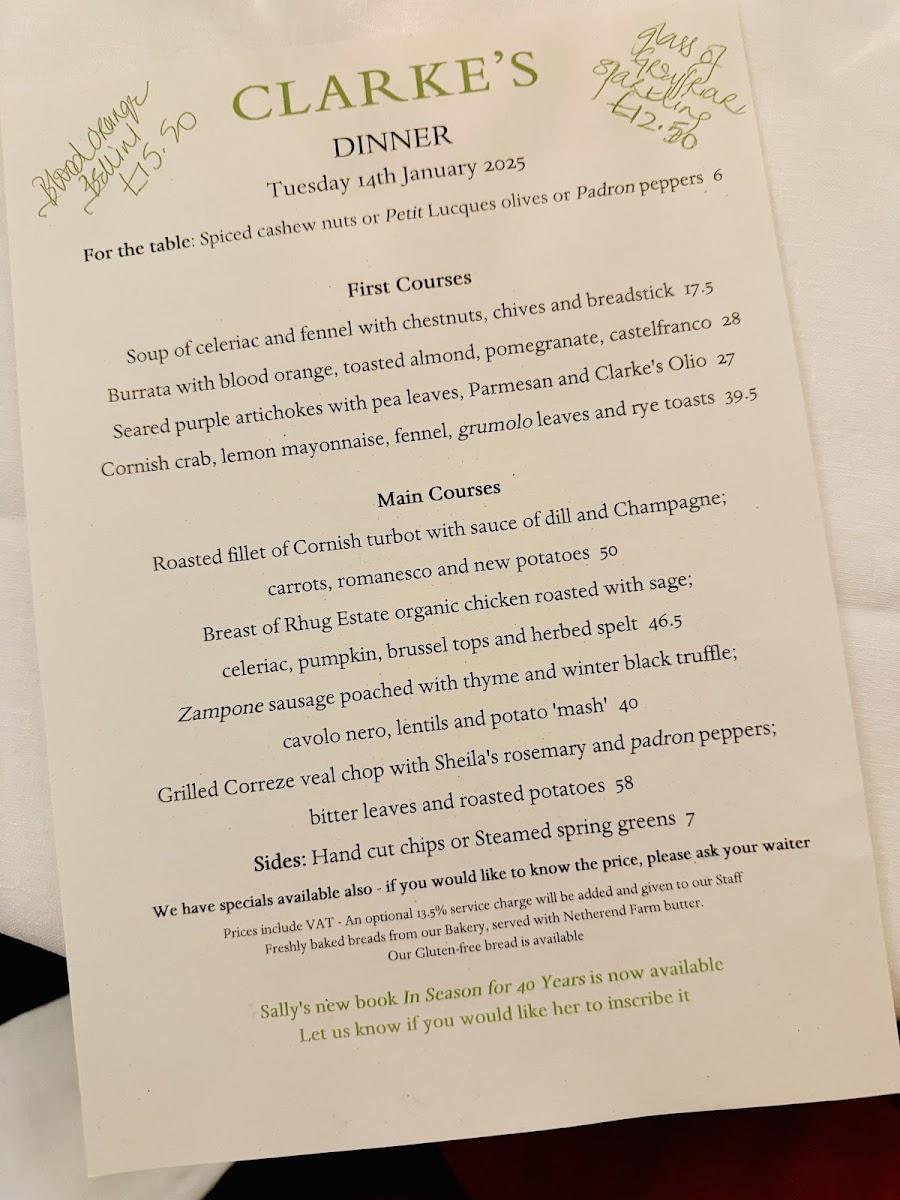 Blood orange
Bellini
£15.50
glass of
Greyfriars
sparkling
£12.50
CLARKE'S
DINNER
Tuesday 14th January 2025
For the table: Spiced cashew nuts or Petit Lucques olives or Padron peppers 6
First Courses
Soup of celeriac and fennel with chestnuts, chives and breadstick 17.5
Burrata with blood orange, toasted almond, pomegranate, castelfranco 28
Seared purple artichokes with pea leaves, Parmesan and Clarke's Olio 27
Cornish crab, lemon mayonnaise, fennel, grumolo leaves and rye toasts 39.5
Main Courses
Roasted fillet of Cornish turbot with sauce of dill and Champagne;
carrots, romanesco and new potatoes 50
Breast of Rhug Estate organic chicken roasted with sage;
celeriac, pumpkin, brussel tops and herbed spelt 46.5
Zampone sausage poached with thyme and winter black truffle;
cavolo nero, lentils and potato 'mash' 40
Grilled Correze veal chop with Sheila's rosemary and padron peppers;
bitter leaves and roasted potatoes 58
Sides: Hand cut chips or Steamed spring greens 7
We have specials available also - if you would like to know the price, please ask your waiter
Prices include VAT - An optional 13.5% service charge will be added and given to our Staff
Freshly baked breads from our Bakery, served with Netherend Farm butter.
Our Gluten-free bread is available
Sally's new book In Season for 40 Years is now available
Let us know if you would like her to inscribe it